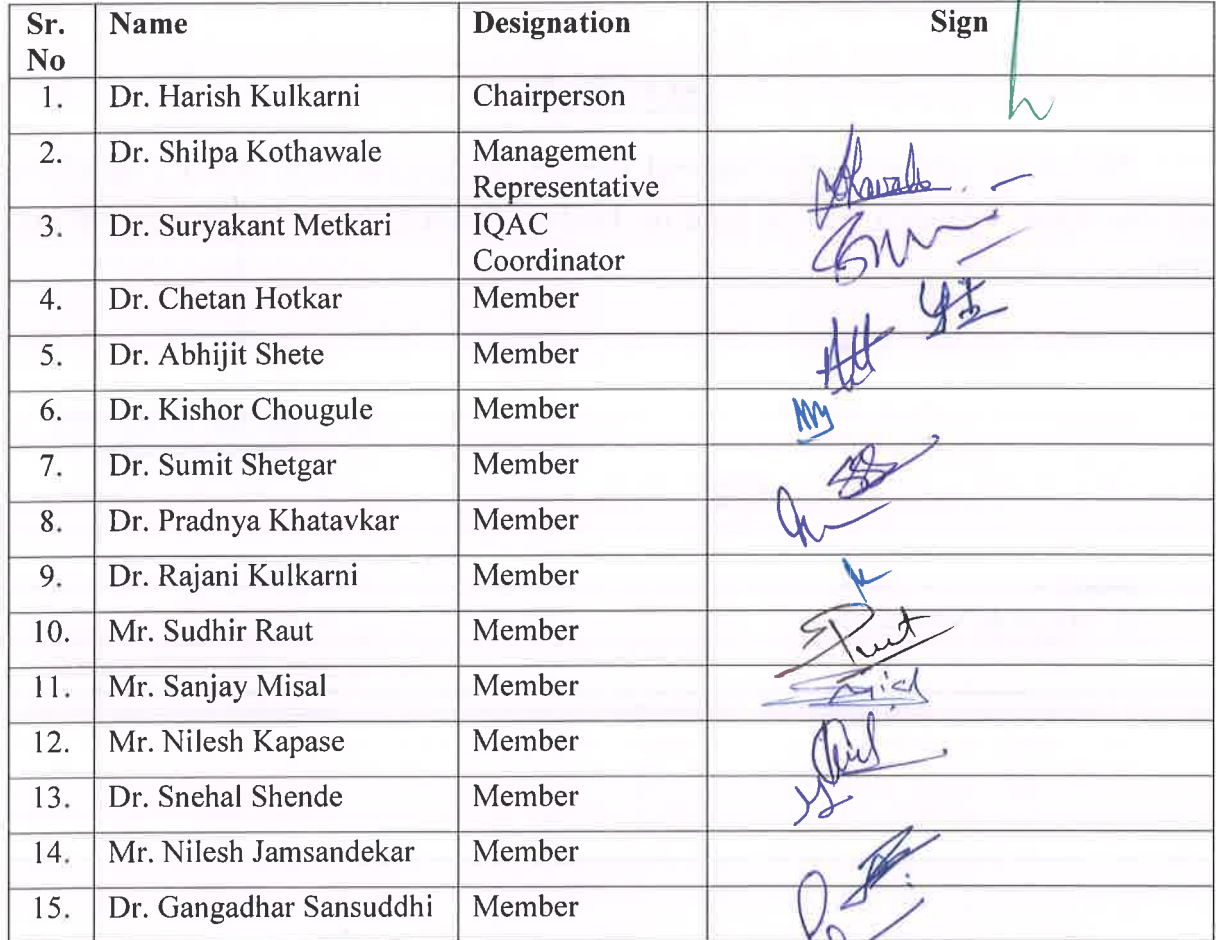 Sr. No Name Designation Sign
1. Dr. Harish Kulkarni Chairperson
2. Dr. Shilpa Kothawale Management
Representative
3. Dr. Suryakant Metkari IQAC
Coordinator
4. Dr. Chetan Hotkar Member
5. Dr. Abhijit Shete Member
6. Dr. Kishor Chougule Member
7. Dr. Sumit Shetgar Member
8. Dr. Pradnya Khatavkar Member
9. Dr. Rajani Kulkarni Member
10. Mr. Sudhir Raut Member
11. Mr. Sanjay Misal Member
12. Mr. Nilesh Kapase Member
13. Dr. Snehal Shende Member
14. Mr. Nilesh Jamsandekar Member
15. Dr. Gangadhar Sansuddhi Member